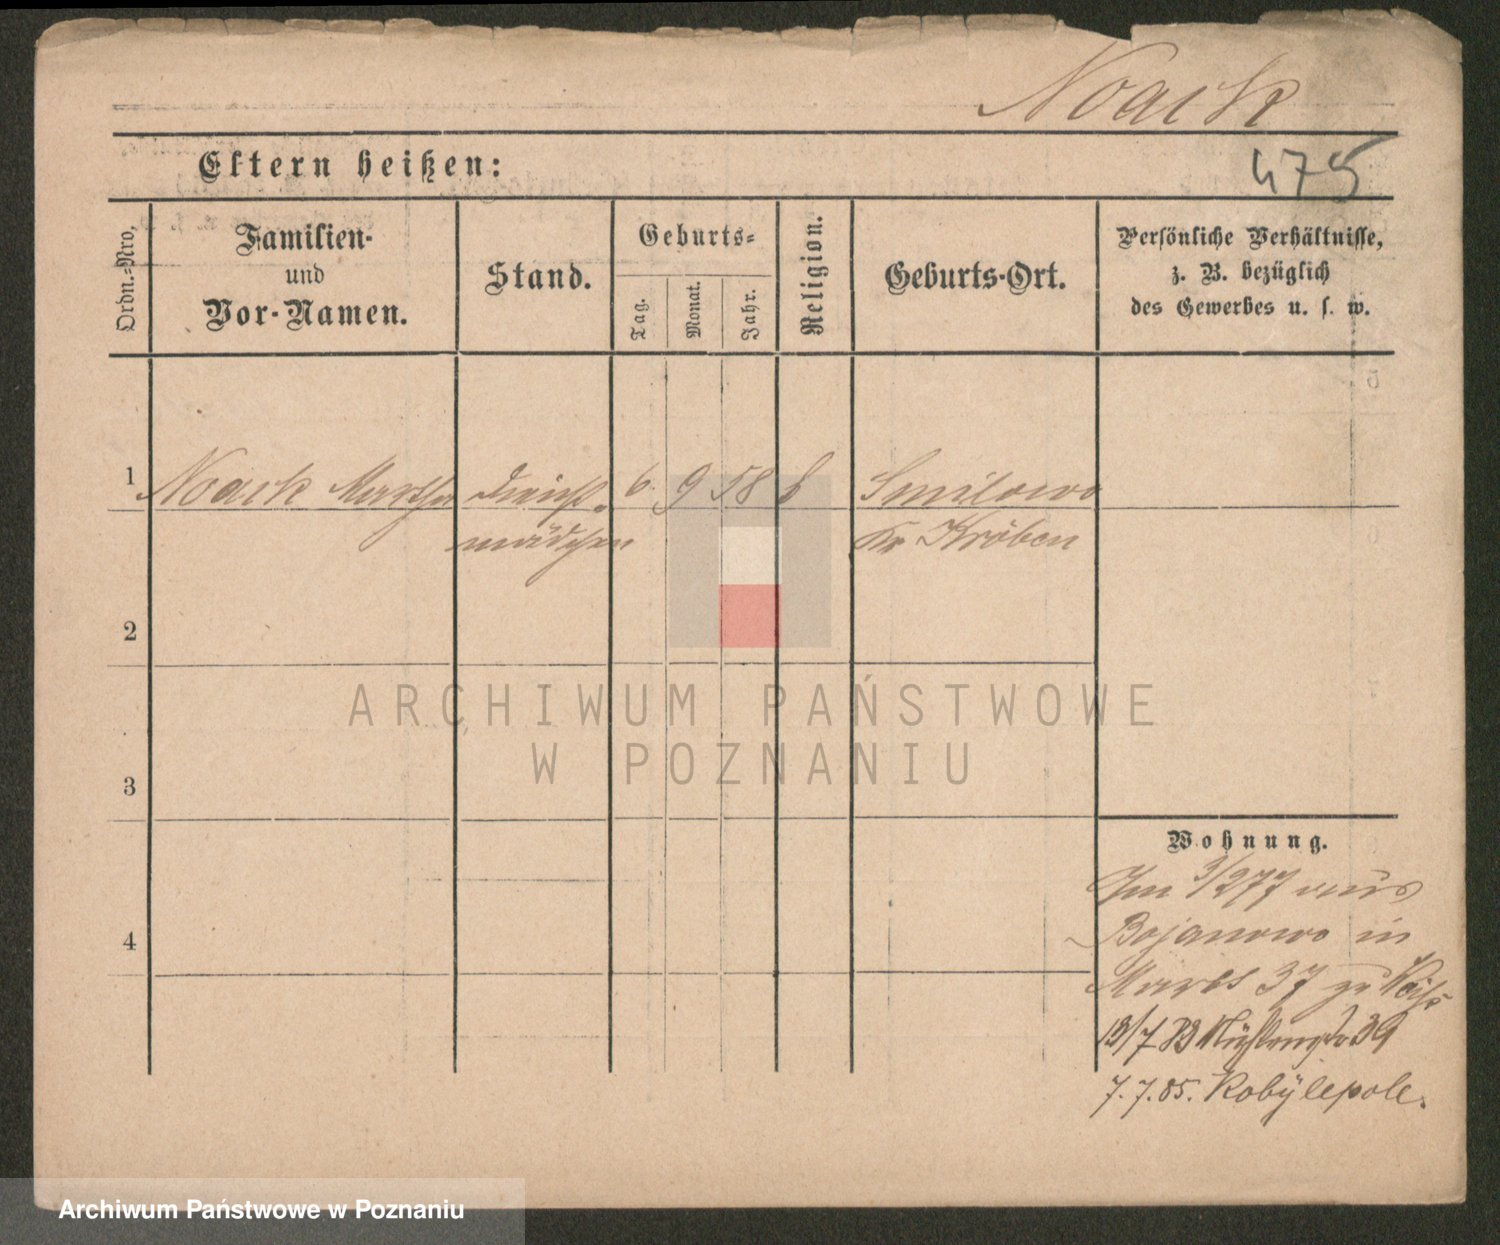 Noack
Eltern heißen:
475
Ordn.-Nro.
Familien-
und
Vor-Namen.
Stand.
Geburts-
Tag.
Monat.
Jahr.
Religion.
Geburts-Ort.
Persönliche Verhältnisse,
z. B. bezüglich
des Gewerbes u. s. w.
1 Noack Martha Dienst- 6. 9 58 Smilowo
mädchen Kr Kröben
2
3
4
Wohnung.
Im 3/2 77 aus
Bojanowo in
Markt 37 zu
13/7 Mühlenstr 39
7.7.85. Kobylepole.
ARCHIWUM PAŃSTWOWE
W POZNANIU
Archiwum Państwowe w Poznaniu